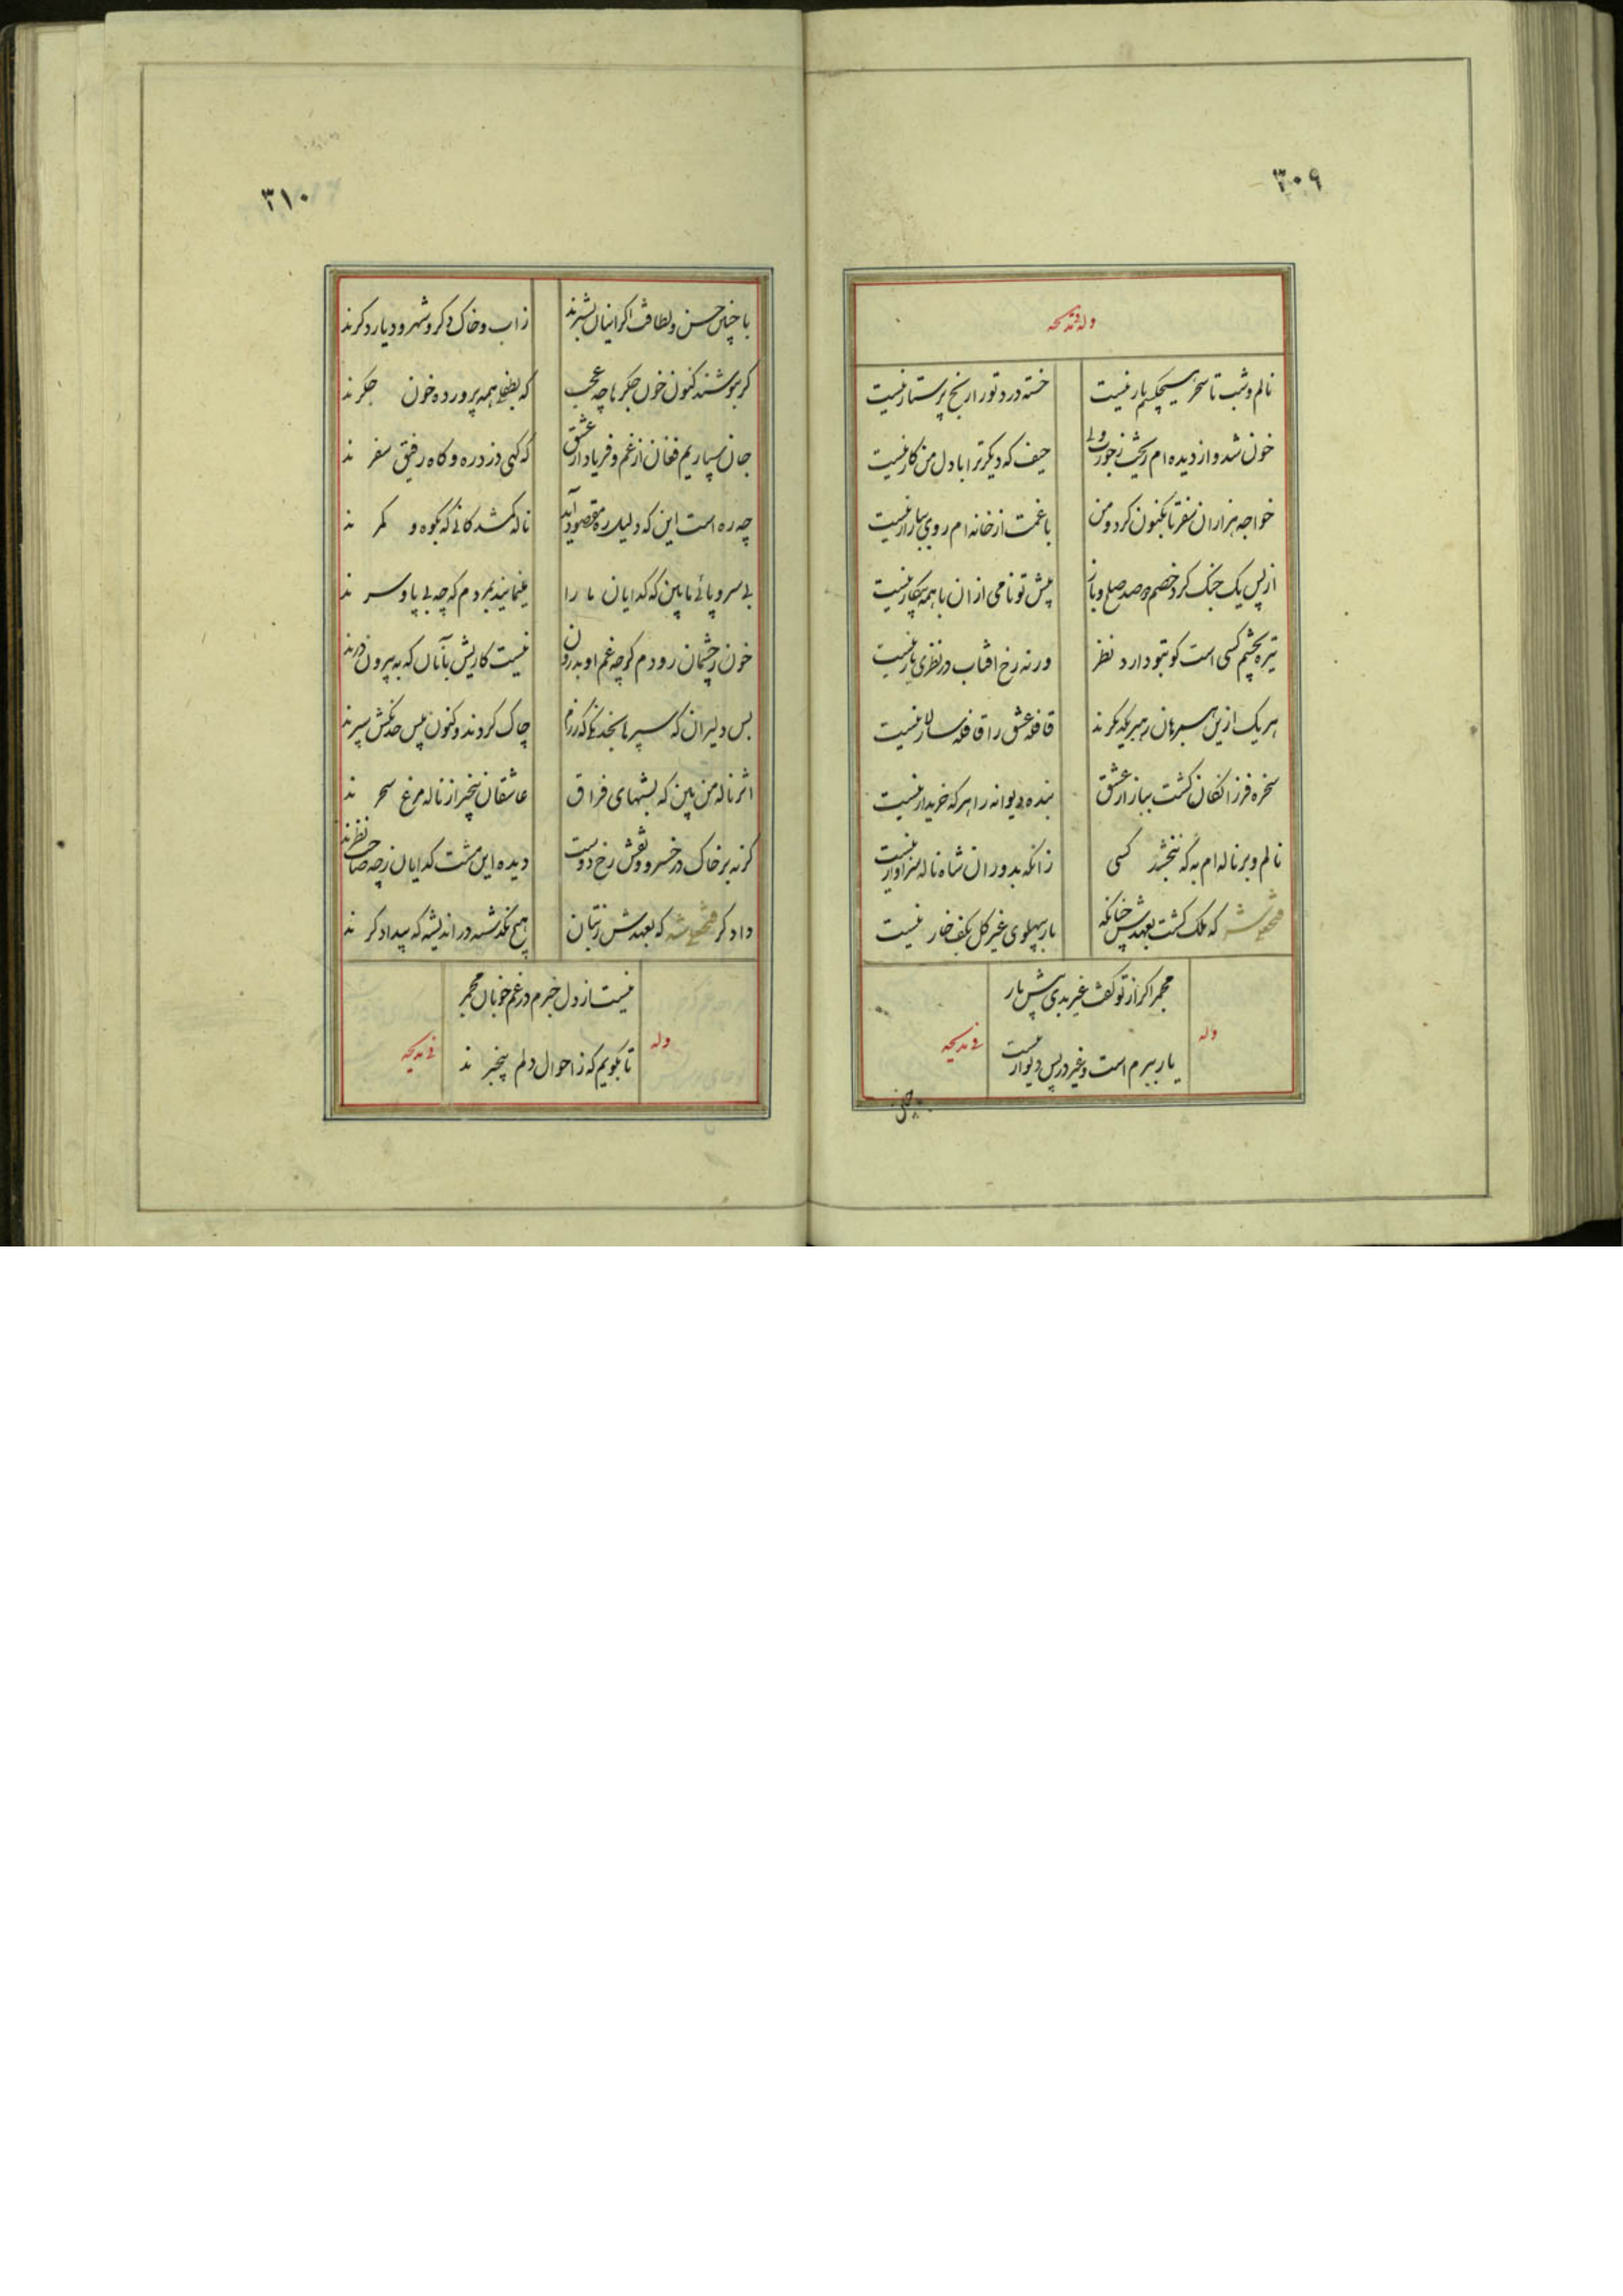 ۳۰۹
وله فی مدیحه
نالم و شب تا سحر هیچکسم یار نیست
خسته درد تو را رنج پرستار نیست
خون شد و از دیده ام ریخت ز جورت ولی
حیف که دیگر ترا با دل من کار نیست
خواجه هزاران سفر تا بکنون کرد و من
با غمت از خانه ام روی ببازار نیست
از پس یک جنک کرد خصم دو صد صلح و باز
پیش تو نامی از ان با همه پیکار نیست
تیره بچشم کسی است کو بتو دارد نظر
ورنه رخ افتاب در نظری تار نیست
هر یک ازین همرهان رهبر یکدیکرند
قافله عشق را قافله سالار نیست
سخره فرزانکان کشت ببازار عشق
بنده دیوانه را هر که خریدار نیست
نالم و بر ناله ام به که نبخشد کسی
زانکه بدوران شاه ناله سزاوار نیست
فتحعلی شه که ملک کشت بعهدش چنانکه
یار بپهلوی غیر کل بکف خار نیست
مجمر اکر از تو کفت غیر بدی پیش یار
وله
فی مدیحه
یار ببرم است و غیر در پس دیوار نیست
۳۱۰
با چنین حسن و لطافت اکر اینان بشرند
ز اب و خاک دکر و شهر و دیار دکرند
کر بنوشند کنون خون جکر ما چه عجب
که بطفلی همه پرورده خون جکرند
جان سپاریم فغان از غم و فریاد از عشق
که کهی دزد ره و کاه رفیق سفرند
چه ره است این که دلیل ره مقصود آید
ناله کمشدکانی که بکوه و کمرند
بی سر و پائی ما بین که کدایان ما را
مینمایند بمردم که چه بی پا و سرند
خون ز چشمان رودم کرچه غم او بدرون
نیست کاریش بآنان که به بیرون درند
بس دلیران که سپرها بخدنکی که رزم
چاک کردند و کنون پیش خدنکش سپرند
اثر ناله من بین که بشبهای فراق
عاشقان بیخبر از ناله مرغ سحرند
کر نه بر خاک در خسرو و نقش رخ دوست
دیده این مشت کدایان ز چه صاحب نظرند
دادکر فتحعلی شه که بعهدش ز بتان
هیچ نکذشته در اندیشه که بیدادکرند
نیست از دل خبرم در غم خوبان مجمر
وله
فی مدیحه
تا بکویم که ز احوال دلم بیخبرند